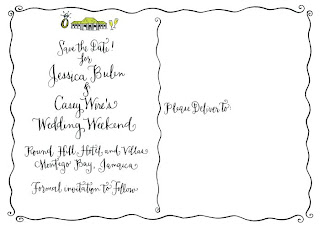 Save the Date!
for
Jessica Bulen
&
Casey Wire's
Wedding Weekend
Round Hill Hotel and Villas
Montego Bay, Jamaica
Formal invitation to Follow
Please Deliver to: